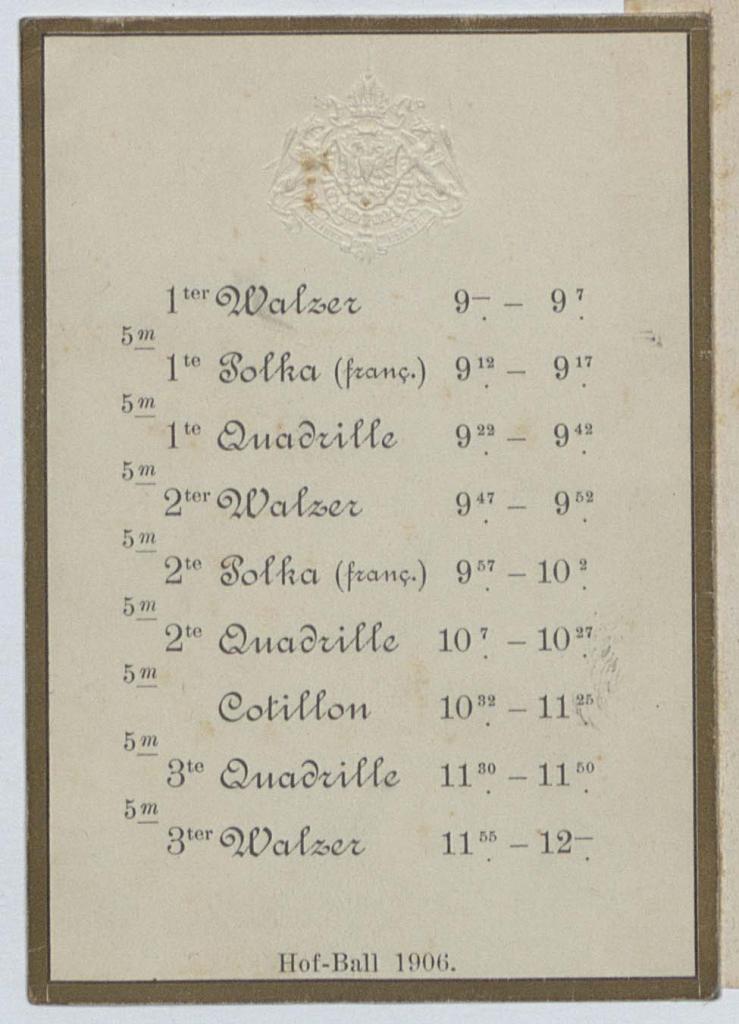 1ter Walzer 9— – 9 7
5 m
1te Polka (franç.) 9 12 – 9 17
5 m
1te Quadrille 9 22 – 9 42
5 m
2ter Walzer 9 47 – 9 52
5 m
2te Polka (franç.) 9 57 – 10 2
5 m
2te Quadrille 10 7 – 10 27
5 m
Cotillon 10 32 – 11 25
5 m
3te Quadrille 11 30 – 11 50
5 m
3ter Walzer 11 55 – 12—
Hof-Ball 1906.